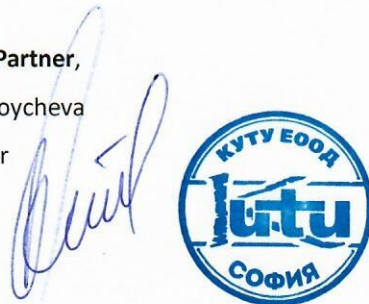 Partner,
oycheva
r
КУТУ ЕООД
kutu
СОФИЯ